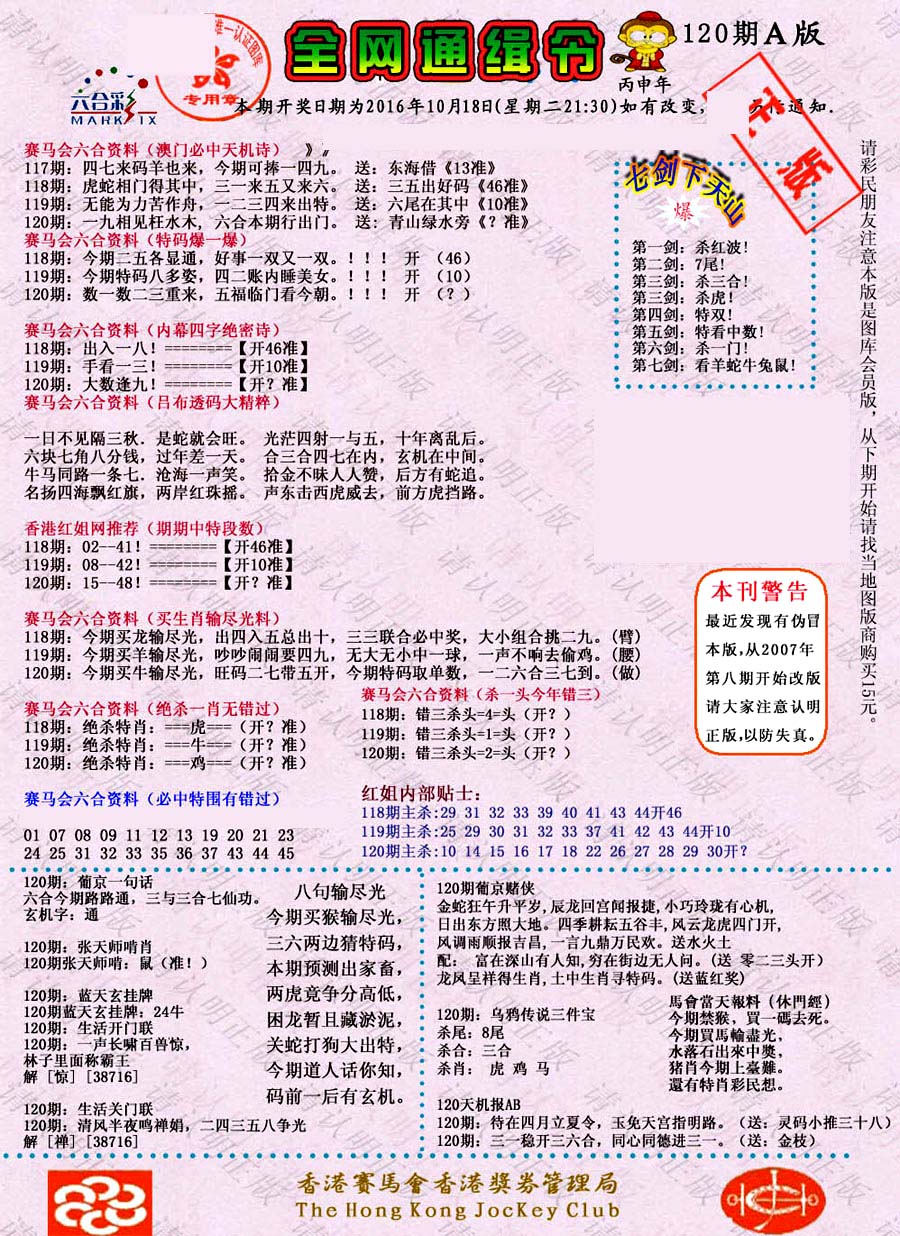 全网通缉令
120期A版
丙申年
唯一认证图库
专用章
六合彩
MARK SIX
本期开奖日期为2016年10月18日(星期二21:30)如有改变,
通知.
正版
赛马会六合资料（澳门必中天机诗）　》〃
117期: 四七来码羊也来, 今期可捧一四九。 送: 东海借《13准》
118期: 虎蛇相门得其中, 三一来五又来六。 送: 三五出好码《46准》
119期: 无能为力苦作舟, 一二三四来出特。 送: 六尾在其中《10准》
120期: 一九相见枉水木, 六合本期行出门。 送: 青山绿水旁《？准》
赛马会六合资料（特码爆一爆）
118期: 今期二五各显通, 好事一双又一双。！！！ 开 （46）
119期: 今期特码八多姿, 四二账内睡美女。！！！ 开 （10）
120期: 数一数二三重来, 五福临门看今朝。！！！ 开 （？）
赛马会六合资料（内幕四字绝密诗）
118期: 出入一八! ========【开46准】
119期: 手看一三! ========【开10准】
120期: 大数逢九! ========【开？准】
赛马会六合资料（吕布透码大精粹）
一日不见隔三秋. 是蛇就会旺。 光茫四射一与五, 十年离乱后。
六块七角八分钱, 过年差一天。 合三合四七在内, 玄机在中间。
牛马同路一条七. 沧海一声笑。 拾金不昧人人赞, 后方有蛇追。
名扬四海飘红旗, 两岸红珠摇。 声东击西虎威去, 前方虎挡路。
香港红姐网推荐（期期中特段数）
118期: 02--41! ========【开46准】
119期: 08--42! ========【开10准】
120期: 15--48! ========【开？准】
赛马会六合资料（买生肖输尽光料）
118期: 今期买龙输尽光, 出四入五总出十, 三三联合必中奖, 大小组合挑二九。(臂)
119期: 今期买羊输尽光, 吵吵闹闹要四九, 无大无小中一球, 一声不响去偷鸡。(腰)
120期: 今期买牛输尽光, 旺码二七带五开, 今期特码取单数, 一二六合三七到。(做)
赛马会六合资料（绝杀一肖无错过）
118期: 绝杀特肖: ===虎===（开？准）
119期: 绝杀特肖: ===牛===（开？准）
120期: 绝杀特肖: ===鸡===（开？准）
赛马会六合资料（杀一头今年错三）
118期: 错三杀头=4=头（开？）
119期: 错三杀头=1=头（开？）
120期: 错三杀头=2=头（开？）
赛马会六合资料（必中特围有错过）
01 07 08 09 11 12 13 19 20 21 23
24 25 31 32 33 35 36 37 43 44 45
红姐内部贴士:
118期主杀:29 31 32 33 39 40 41 43 44开46
119期主杀:25 29 30 31 32 33 37 41 42 43 44开10
120期主杀:10 14 15 16 17 18 22 26 27 28 29 30开?
七剑下天山
爆
第一剑: 杀红波!
第二剑: 7尾!
第三剑: 杀三合!
第三剑: 杀虎!
第四剑: 特双!
第五剑: 特看中数!
第六剑: 杀一门!
第七剑: 看羊蛇牛兔鼠!
请彩民朋友注意本版是图库会员版, 从下期开始请找当地图版商购买15元。
本刊警告
最近发现有伪冒
本版,从2007年
第八期开始改版
请大家注意认明
正版,以防失真。
120期: 葡京一句话
六合今期路路通, 三与三合七仙功。
玄机字: 通
120期: 张天师啃肖
120期张天师啃: 鼠（准!）
120期: 蓝天玄挂牌
120期蓝天玄挂牌: 24牛
120期: 生活开门联
120期: 一声长啸百兽惊,
林子里面称霸王
解 [惊] [38716]
120期: 生活关门联
120期: 清风半夜鸣禅娟, 二四三五八争光
解 [禅] [38716]
八句输尽光
今期买猴输尽光,
三六两边猜特码,
本期预测出家畜,
两虎竞争分高低,
困龙暂且藏淤泥,
关蛇打狗大出特,
今期道人话你知,
码前一后有玄机。
120期葡京赌侠
金蛇狂午升平岁, 辰龙回宫闻报捷, 小巧玲珑有心机,
日出东方照大地。四季耕耘五谷丰, 风云龙虎四门开,
风调雨顺报吉昌, 一言九鼎万民欢。送水火土
配: 富在深山有人知, 穷在街边无人问。(送 零二三头开)
龙凤呈样得生肖, 土中生肖寻特码。(送蓝红奖)
120期: 乌鸦传说三件宝
杀尾: 8尾
杀合: 三合
杀肖: 虎 鸡 马
馬會當天報料（休門經）
今期禁猴, 買一碼去死。
今期買馬輸盡光,
水落石出來中獎,
猪肖今期上臺難。
還有特肖彩民想。
120天机报AB
120期: 待在四月立夏令, 玉免天宫指明路。（送: 灵码小推三十八）
120期: 三一稳开三六合, 同心同德进三一。（送: 金枝）
香港賽馬會香港獎券管理局
The Hong Kong JocKey Club